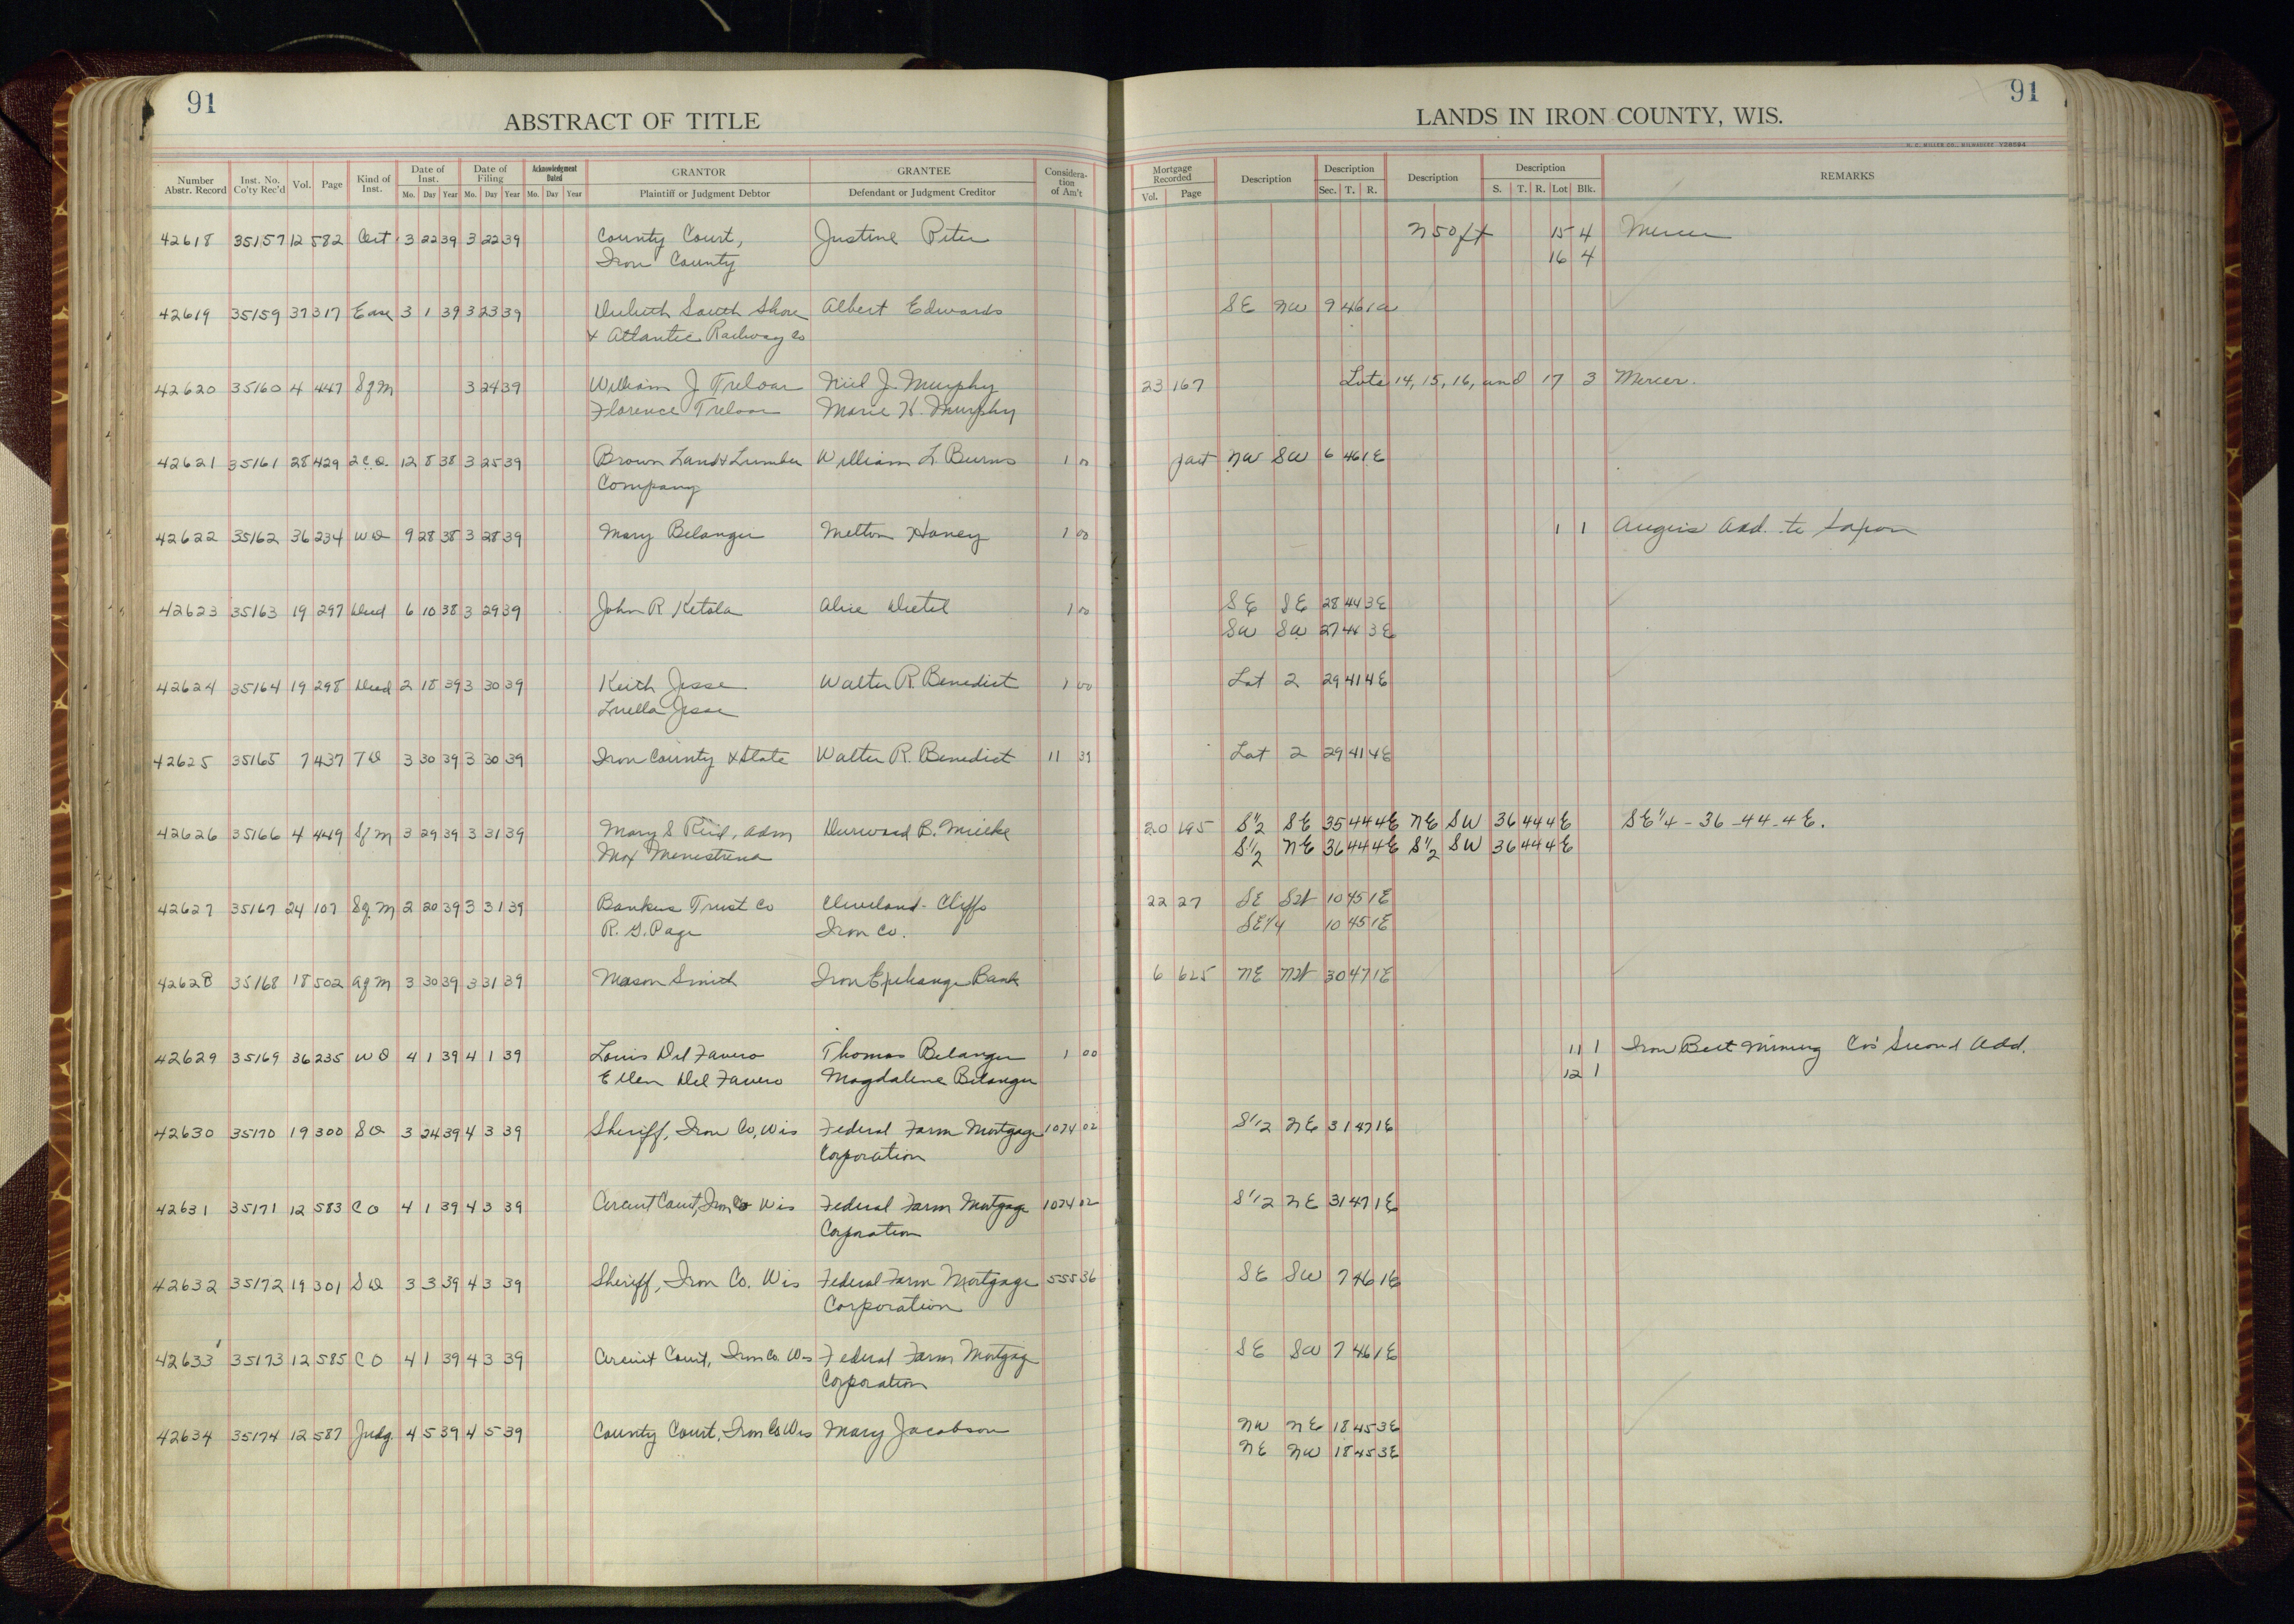 91
ABSTRACT OF TITLE
Number Abstr. Record Inst. No. Co'ty Rec'd Vol. Page Kind of Inst. Date of Inst. Mo. Day Year Date of Filing Mo. Day Year Acknowledgment Dated Mo. Day Year GRANTOR Plaintiff or Judgment Debtor GRANTEE Defendant or Judgment Creditor Considera- tion of Am't
42618 35157 12 582 Cert 3 22 39 3 22 39 County Court, Justine Peter
Iron County
42619 35159 37 317 Ease 3 1 39 3 23 39 Duluth South Shore Albert Edwards
& Atlantic Railway Co
42620 35160 4 447 Sfm 3 24 39 William J Treloar Neil J. Murphy
Florence Treloar Marie K. Murphy
42621 35161 28 429 2CD 12 8 38 3 25 39 Brown Land & Lumber William L. Burns 1 00
Company
42622 35162 36 234 WD 9 28 38 3 28 39 Mary Belanger Melton Haney 1 00
42623 35163 19 297 Deed 6 10 38 3 29 39 John R Ketola Alice Dietel 1 00
42624 35164 19 298 Deed 2 18 39 3 30 39 Keith Jesse Walter R. Benedict 1 00
Luella Jesse
42625 35165 7 437 TD 3 30 39 3 30 39 Iron County & State Walter R. Benedict 11 39
42626 35166 4 449 Sfm 3 29 39 3 31 39 Mary S Reid, adm Durward B. Mielke
Max Menestrina
42627 35167 24 107 Sfm 2 20 39 3 31 39 Bankers Trust Co Cleveland-Cliffs
R. G. Page Iron Co.
42628 35168 18 502 Afm 3 30 39 3 31 39 Mason Smith Iron Exchange Bank
42629 35169 36 235 WD 4 1 39 4 1 39 Louis Del Favero Thomas Belanger 1 00
Ellen Del Favero Magdalene Belanger
42630 35170 19 300 SD 3 24 39 4 3 39 Sheriff, Iron Co, Wis Federal Farm Mortgage 1074 02
Corporation
42631 35171 12 583 CO 4 1 39 4 3 39 Circuit Court, Iron Co Wis Federal Farm Mortgage 1074 02
Corporation
42632 35172 19 301 SD 3 3 39 4 3 39 Sheriff, Iron Co. Wis Federal Farm Mortgage 555 36
Corporation
42633 35173 12 585 CO 4 1 39 4 3 39 Circuit Court, Iron Co. Wis Federal Farm Mortgag
Corporation
42634 35174 12 587 Judg. 4 5 39 4 5 39 County Court, Iron Co Wis Mary Jacobson
91
LANDS IN IRON COUNTY, WIS.
H. C. MILLER CO., MILWAUKEE Y28594
Mortgage Recorded Vol. Page Description Description Sec. T. R. Description Description S. T. R. Lot Blk. REMARKS
N 50 ft 15 4 Mercer
16 4
SE NW 9 46 1
23 167 Lots 14, 15, 16, and 17 3 Mercer.
part NW SW 6 46 1E
1 1 Add. to Saxon
SE SE 28 44 3E
SW SW 27 44 3E
Lot 2 29 41 4E
Lot 2 29 41 4E
20 195 S1/2 SE 35 44 4E NE SW 36 44 4E SE 1/4 - 36 - 44 - 4 E.
S1/2 NE 36 44 4E S1/2 SW 36 44 4E
22 27 SE SW 10 45 1E
SE1/4 10 45 1E
6 625 NE NW 30 47 1E
11 1 Iron Belt Mining Co's Second Add.
12 1
S1/2 NE 31 47 1E
S1/2 NE 31 47 1E
SE SW 7 46 1E
SE SW 7 46 1E
NW NE 18 45 3E
NE NW 18 45 3E